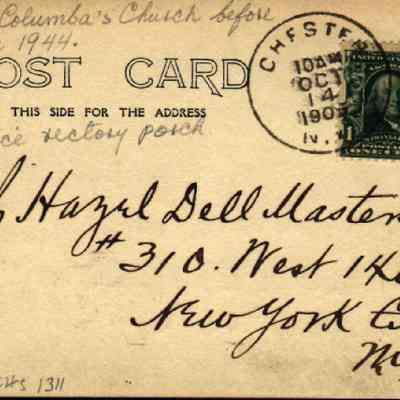 Columba's Church before
1944.
POST CARD
THIS SIDE FOR THE ADDRESS
rectory porch
CHESTE
10 AM
OCT
14
190
N.Y.
UNITED STATES
1
Hazel Dell Master
# 310. West 14
New York C
1311